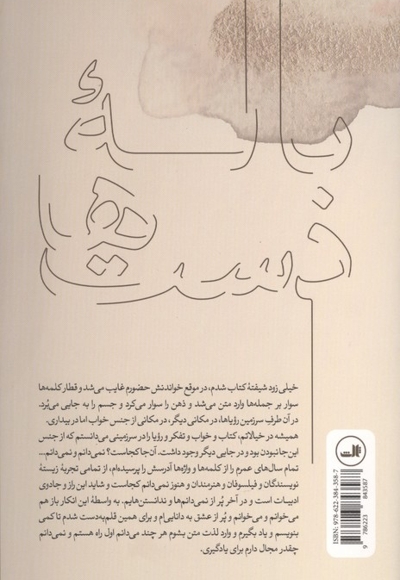 بالهٔ
دست‌ها
خیلی زود شیفتهٔ کتاب شدم، در موقع خواندنش حضورم غایب می‌شد و قطار کلمه‌ها
سوار بر جمله‌ها وارد متن می‌شد و ذهن را سوار می‌کرد و جسم را به جایی می‌بُرد.
در آن طرفِ سرزمین رؤیاها، در مکانی دیگر، در مکانی از جنس خواب اما در بیداری.
همیشه در خیالاتم، کتاب و خواب و تفکر و رؤیا را در سرزمینی می‌دانستم که از جنس
این جا نبودن بود و در جایی دیگر وجود داشت. آن‌جا کجاست؟ نمی‌دانم و نمی‌دانم...
تمام سال‌های عمرم را از کلمه‌ها و واژه‌ها آدرسش را پرسیده‌ام، از تمامی تجربهٔ زیستهٔ
نویسندگان و فیلسوفان و هنرمندان و هنوز نمی‌دانم کجاست و شاید این راز و جادوی
ادبیات است و در آخر پُر از نمی‌دانم‌ها و ندانستن‌هایم. به واسطهٔ این انکار باز هم
می‌خوانم و می‌خوانم و پُر از عشق به دانایی‌ام و برای همین قلم‌به‌دست شدم تا کمی
بنویسم و یاد بگیرم و وارد لذت متن بشوم هر چند می‌دانم اول راه هستم و نمی‌دانم
چقدر مجال دارم برای یادگیری.
ISBN: 978-622-384-358-7
9 786223 843587